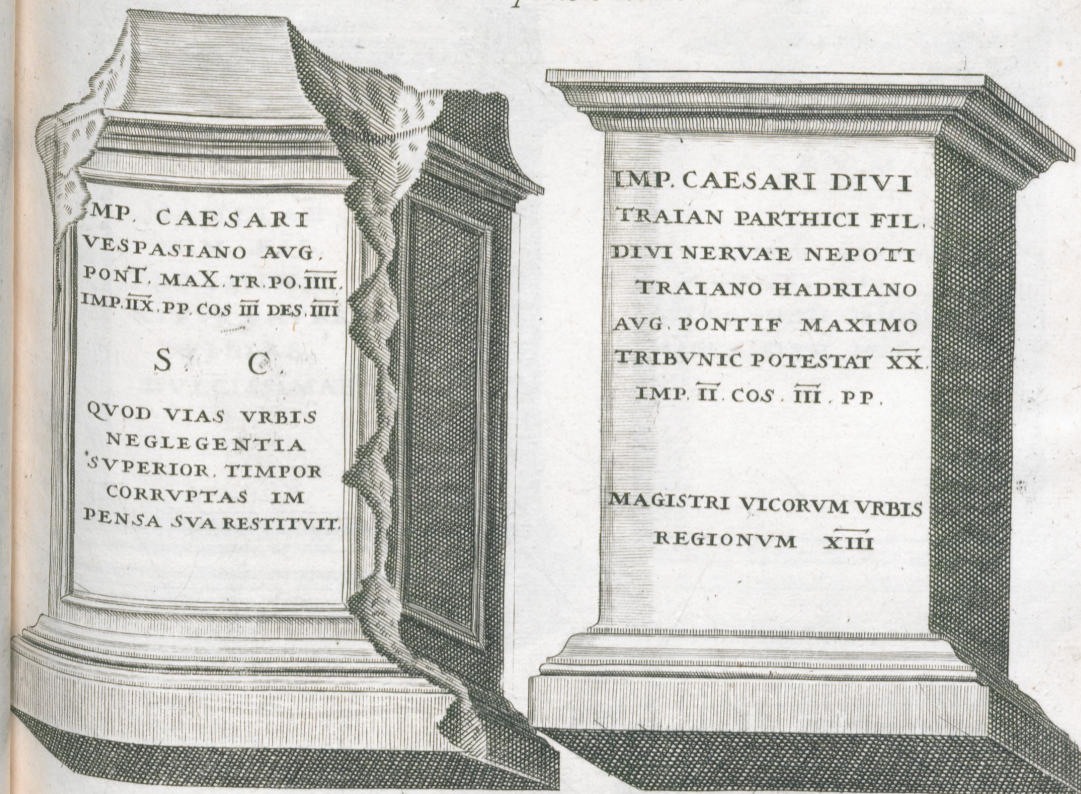 MP. CAESARI
VESPASIANO AVG.
PONT. MAX. TR. PO. I̅I̅I̅I̅.
IMP. I̅I̅X̅. PP. COS I̅I̅I̅ DES. I̅I̅I̅I̅
S C.
QVOD VIAS VRBIS
NEGLEGENTIA
SVPERIOR. TIMPOR
CORRVPTAS IM
PENSA SVA RESTITVIT.
IMP. CAESARI DIVI
TRAIAN PARTHICI FIL.
DIVI NERVAE NEPOTI
TRAIANO HADRIANO
AVG. PONTIF MAXIMO
TRIBVNIC POTESTAT X̅X̅.
IMP. I̅I̅. COS. I̅I̅I̅. PP.
MAGISTRI VICORVM VRBIS
REGIONVM X̅I̅I̅I̅